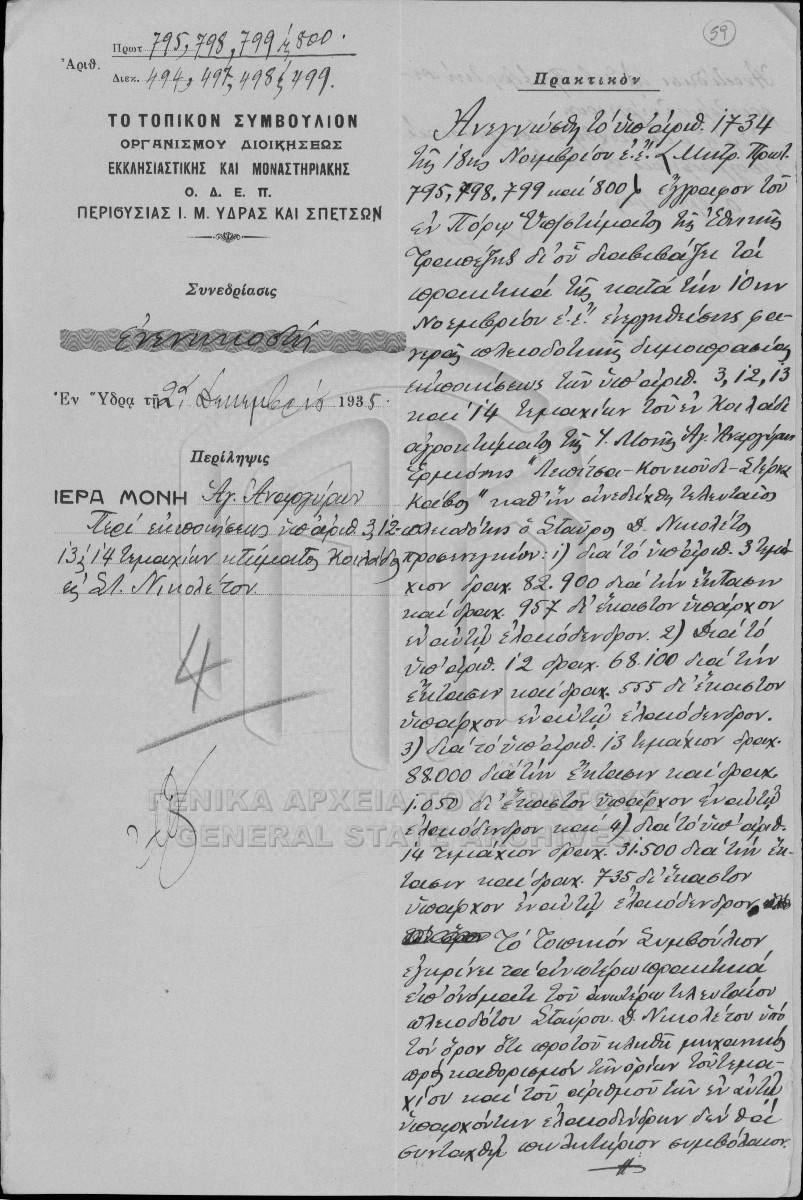 59
Ἀριθ.
Πρωτ 795, 798, 799 ἡ 800.
Διεκ. 494, 497, 498 ἡ 499.
ΤΟ ΤΟΠΙΚΟΝ ΣΥΜΒΟΥΛΙΟΝ
ΟΡΓΑΝΙΣΜΟΥ ΔΙΟΙΚΗΣΕΩΣ
ΕΚΚΛΗΣΙΑΣΤΙΚΗΣ ΚΑΙ ΜΟΝΑΣΤΗΡΙΑΚΗΣ
Ο. Δ. Ε. Π.
ΠΕΡΙΟΥΣΙΑΣ Ι. Μ. ΥΔΡΑΣ ΚΑΙ ΣΠΕΤΣΩΝ
Συνεδρίασις
ἐνενηκοστή
Ἐν Ὕδρᾳ τῇ Δεκεμβρίου 1935.
Περίληψις
ΙΕΡΑ ΜΟΝΗ Ἁγ. Ἀναργύρων
Περί ἐκποιήσεως ὑπ' ἀριθ. 3, 12
13 ἡ 14 τεμαχίων κτήματος Κοιλάδος
εἰς Στ. Νικολέτον.
4
Πρακτικὸν
Ἀνεγνώσθη τό ὑπ' ἀριθ. 1734
τῆς 18ης Νοεμβρίου ἐ.ἔ. (Μητρ. Πρωτ.
795, 798, 799 καί 800) ἔγγραφον τοῦ
ἐν Πόρῳ Ὑπ)στήματος τῆς Ἐθνικῆς
Τραπέζης δι' οὗ διαβιβάζει τά
πρακτικά τῆς κατά τήν 10ην
Νοεμβρίου ἐ.ἔ. ἐνεργηθείσης φα-
νερᾶς πλειοδοτικῆς δημοπρασίας
ἐκποιήσεως τῶν ὑπ' ἀριθ. 3, 12, 13
καί 14 τεμαχίων τοῦ ἐν Κοιλάδι
ἀγροκτήματος τῆς Ἱ. Μονῆς Ἁγ. Ἀναργύρων
Ἑρμιόνης "Λεπίτσα-Κουκούδι-Στέρνα
Κάβος" καθ' ἥν ἀνεδείχθη τελευταῖος
πλειοδότης ὁ Σταῦρος Δ. Νικολέτος
προσενεγκών: 1) διά τό ὑπ' ἀριθ. 3 τεμά-
χιον δραχ. 82.900 διά τήν ἔκτασιν
καί δραχ. 957 δι' ἕκαστον ὑπάρχον
ἐν αὐτῷ ἐλαιόδενδρον. 2) Διά τό
ὑπ' ἀριθ. 12 δραχ. 68.100 διά τήν
ἔκτασιν καί δραχ. 555 δι' ἕκαστον
ὑπάρχον ἐν αὐτῷ ἐλαιόδενδρον.
3) διά τό ὑπ' ἀριθ. 13 τεμάχιον δραχ.
88.000 διά τήν ἔκτασιν καί δραχ.
1.050 δι' ἕκαστον ὑπάρχον ἐν αὐτῷ
ἐλαιόδενδρον καί 4) διά τό ὑπ' ἀριθ.
14 τεμάχιον δραχ. 31.500 διά τήν ἔκ-
τασιν καί δραχ. 735 δι' ἕκαστον
ὑπάρχον ἐν αὐτῷ ἐλαιόδενδρον.
Τό Τοπικόν Συμβούλιον
ἐγκρίνει τά ἀνωτέρω πρακτικά
ἐπ' ὀνόματι τοῦ ἀνωτέρω τελευταίου
πλειοδότου Σταύρου Δ. Νικολέτου ὑπό
τόν ὅρον ὅτι προτοῦ κληθῇ μηχανικός
πρός καθορισμόν τῶν ὁρίων τοῦ τεμα-
χίου καί τοῦ ἀριθμοῦ τῶν ἐν αὐτῷ
ὑπαρχόντων ἐλαιοδένδρων δέν θά
συνταχθῇ πωλητήριον συμβόλαιον.
ΓΕΝΙΚΑ ΑΡΧΕΙΑ ΤΟΥ ΚΡΑΤΟΥΣ
GENERAL STATE ARCHIVES